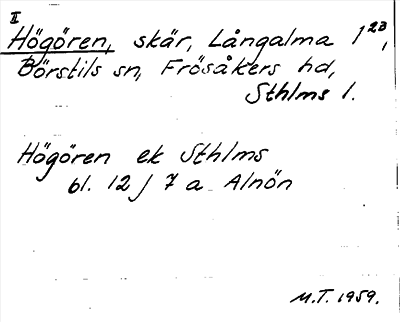 II
Högören, skär, Långalma 1²³,
Börstils sn, Frösåkers hd,
Sthlms l.
Högören ek Sthlms
bl. 12 J 7 a Alnön
M.T. 1959.